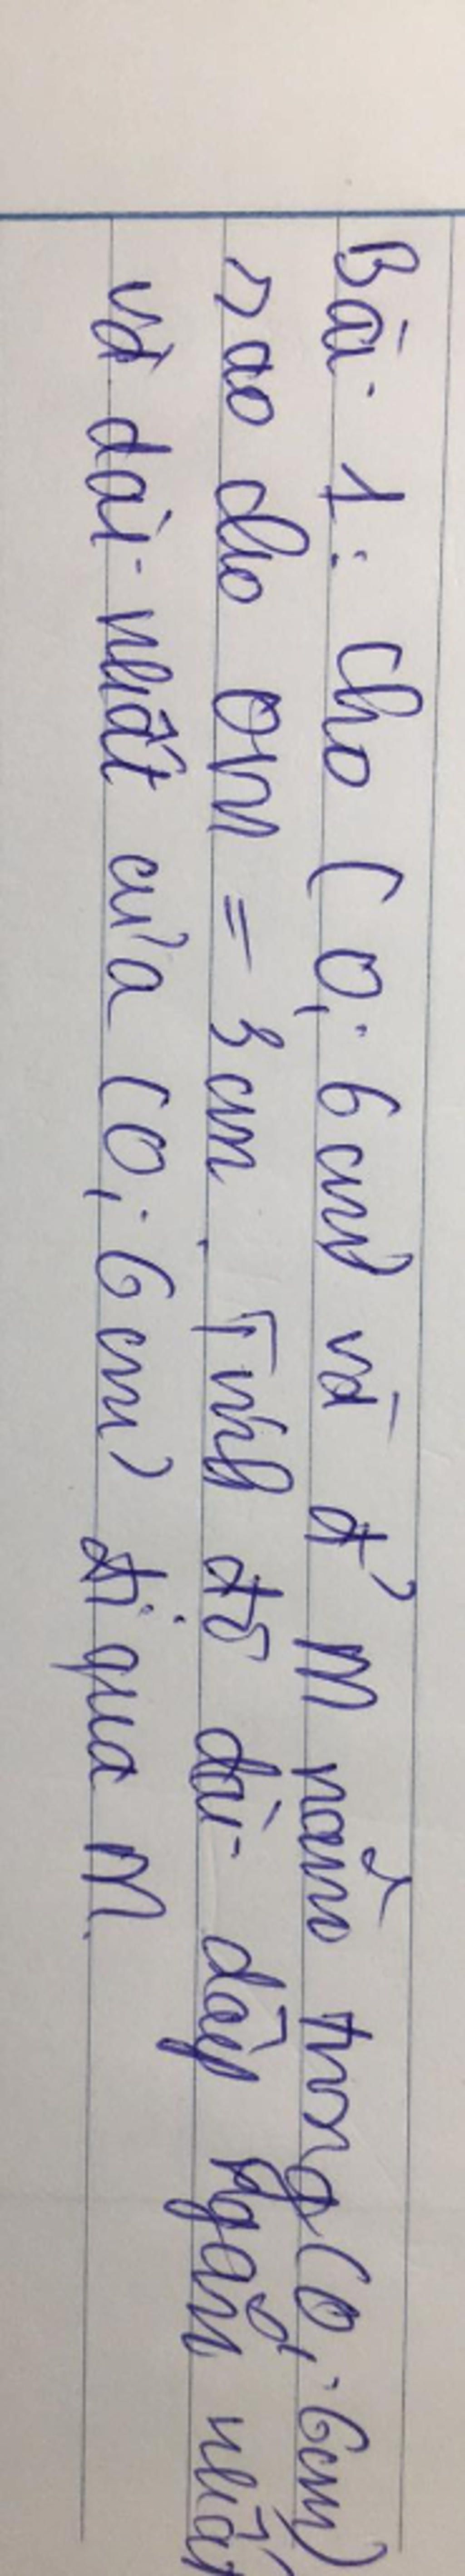 Bài 1: Cho (O; 6cm) và đ' M nằm trong (O; 6cm)
sao cho OM = 3cm. Tính độ dài dây ngắn nhất
và dài nhất của (O; 6cm) đi qua M.